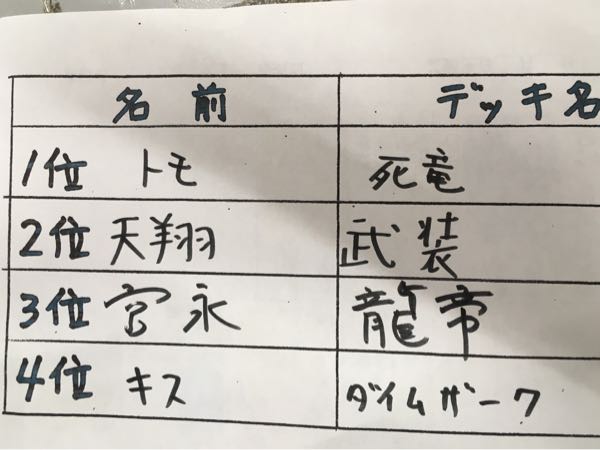 名前 デッキ名
1位 トモ 死竜
2位 天翔 武装
3位 宮永 龍帝
4位 キス ダイムザーク